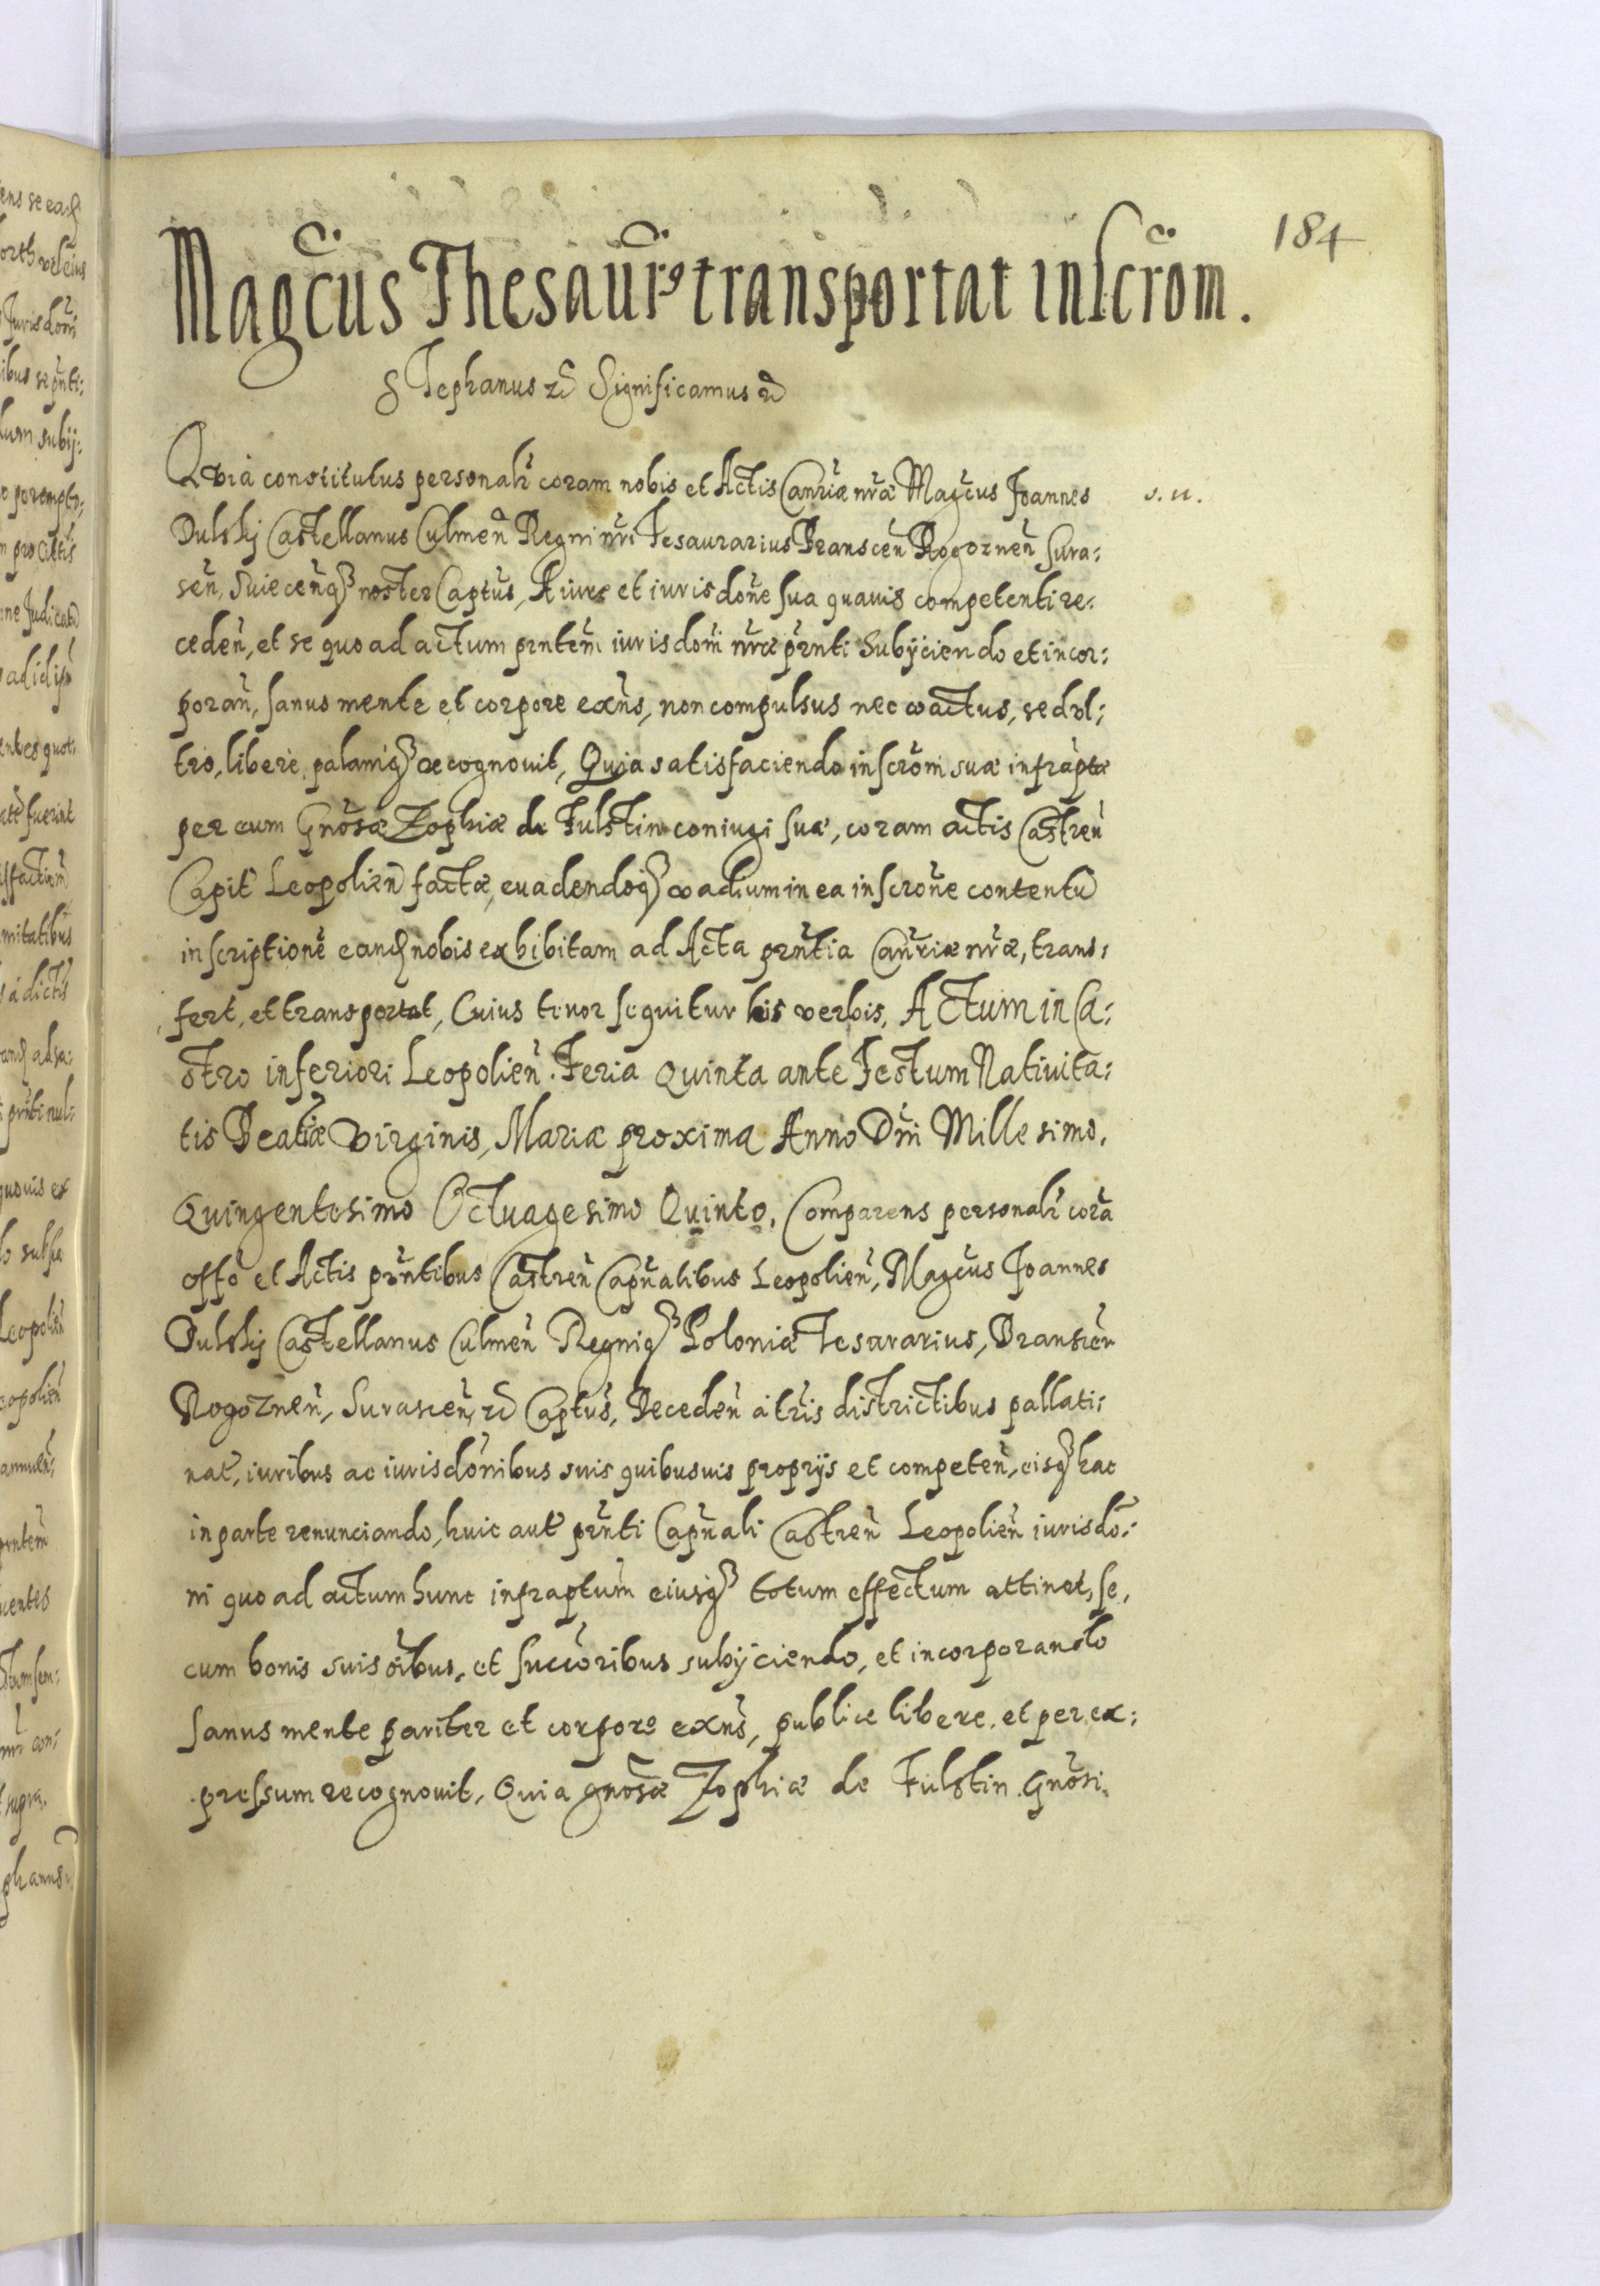 184
Magcus Thesaurs transportat inscrom.
Stephanus etc Significamus etc
Quia constitutus personalr coram nobis et Actis Canriæ nræ Magcus Joannes
s. u.
Dulskj Castellanus Culmen Regni nri Tesaurarius Branscen Rogoznen Sura:
sen, Suiecenq noster Captus, A iure et iurisdone sua quauis competenti re:
ceden, et se quo ad actum prntem iurisdoni nræ prnti Subÿciendo et incor:
poran, sanus mente et corpore exns, non compulsus nec coactus, sed vl:
tro, libere, palamq recognouit, Quia satisfaciendo inscrom suæ infraptæ
per eum Gnosæ Zophiæ de Fulstin coniugi suæ, coram actis Castren
Capit Leopolien factæ, euadendoq vadium in ea inscrone contentu
inscriptione eand nobis exhibitam ad Acta prntia Canriæ nræ, trans:
fert, et transportat, Cuius tenor sequitur his verbis, Actum in Ca:
stro inferiori Leopolien. Feria Quinta ante Festum Natiuita:
tis Beatiæ Virginis, Mariæ proxima Anno Dni Millesimo,
Quingentesimo Octuagesimo Quinto, Comparens personalr cora
offo et Actis prntibus Castren Capnalibus Leopolien, Magcus Joannes
Dulskj Castellanus Culmen Regniq Poloniæ Tesaurarius, Branscen
Rogoznen, Surascen, etc Captus, Receden a tris districtibus pallati:
nat, iuribus ac iurisdonibus suis quibusuis proprijs et competen, eisq hac
in parte renunciando, huic aut prnti Capnali Castren Leopolien iurisdo:
ni quo ad actum hunc infraptum eiusq totum effectum attinet, se,
cum bonis suis oibus, et succoribus subÿciendo, et incorporando
sanus mente pariter et corpore exns, publice libere, et per ex:
pressum recognouit, Quia gnosæ Zophiæ de Fulstin Gnosi